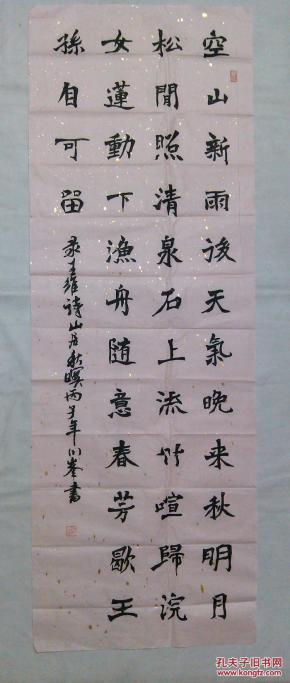 空山新雨後天氣晚来秋明月
松間照清泉石上流竹喧歸浣
女蓮動下漁舟随意春芳歇王
孫自可留
录王維詩山居秋暝丙年川書
孔夫子旧书网